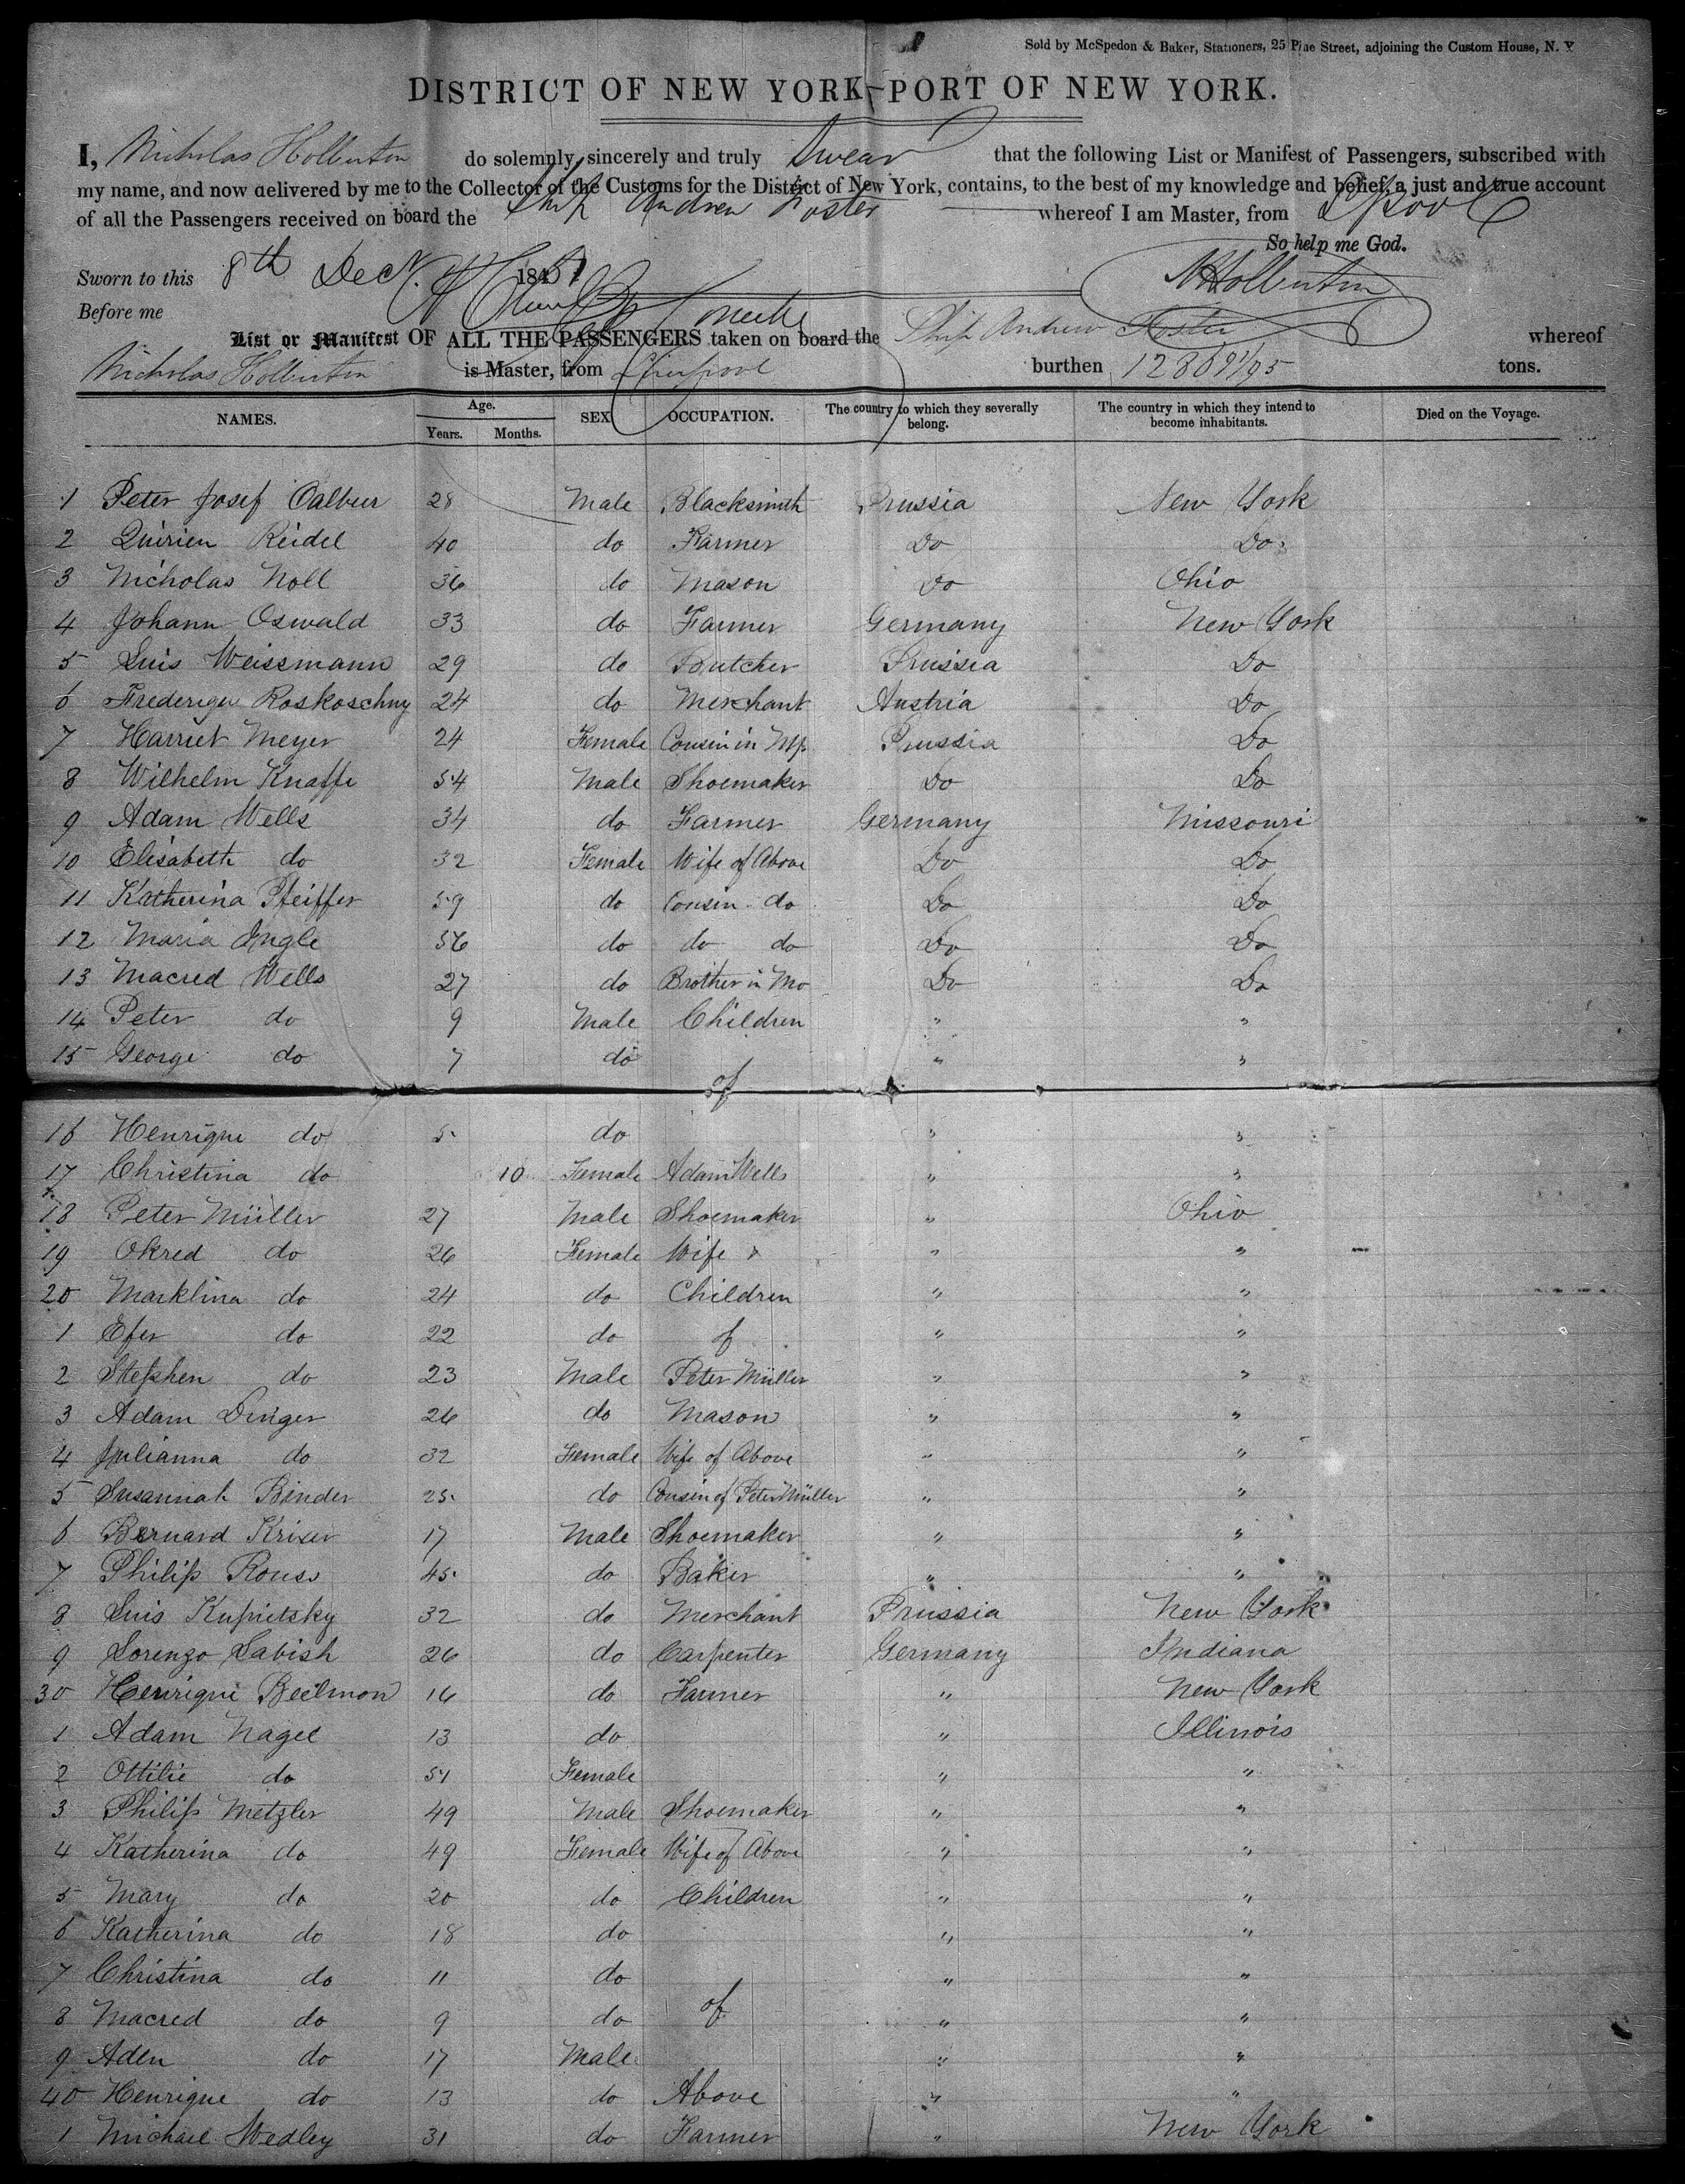 Sold by McSpedon & Baker, Stationers, 25 Pine Street, adjoining the Custom House, N. Y
DISTRICT OF NEW YORK—PORT OF NEW YORK.
I, Nicholas Holberton do solemnly, sincerely and truly Swear that the following List or Manifest of Passengers, subscribed with
my name, and now delivered by me to the Collector of the Customs for the District of New York, contains, to the best of my knowledge and belief, a just and true account
of all the Passengers received on board the Ship Andrew Foster whereof I am Master, from Lpool
So help me God.
Sworn to this 8th Decr. 1857 N Holberton
Before me
List or Manifest OF ALL THE PASSENGERS taken on board the Ship Andrew Foster whereof
Nicholas Holberton is Master, from Liverpool burthen 1286 91/95 tons.
NAMES. Age. Years. Months. SEX OCCUPATION. The country to which they severally belong. The country in which they intend to become inhabitants. Died on the Voyage.
1 Peter Josef 28 Male Blacksmith Prussia New York
2 Quirien Reidel 40 do Farmer Do Do
3 Nicholas Noll 36 do Mason Do Ohio
4 Johann Oswald 33 do Farmer Germany New York
5 Luis Weissmann 29 do Butcher Prussia Do
6 Roskoschny 24 do Merchant Austria Do
7 Harriet Meyer 24 Female Cousin in Prussia Do
8 Wilhelm Knaffe 54 Male Shoemaker Do Do
9 Adam Wells 34 do Farmer Germany Missouri
10 Elisabeth do 32 Female Wife of Above Do Do
11 Katherina Pfeiffer 59 do Cousin do Do Do
12 Maria Ingle 56 do do do Do Do
13 Macred Wells 27 do Brother in Mo Do Do
14 Peter do 9 Male Children " "
15 George do 7 do " "
of
16 Henrique do 5 do " "
17 Christina do 10 Female Adam Wells " "
18 Peter Müller 27 Male Shoemaker " Ohio
19 Okred do 26 Female Wife & " "
20 Marklina do 24 do Children " "
1 Efer do 22 do of " "
2 Stephen do 23 Male Peter Müller " "
3 Adam Dinger 26 do Mason " "
4 Julianna do 32 Female Wife of Above " "
5 Susannah Binder 25 do Cousin of Peter Müller " "
6 Bernard Kriser 17 Male Shoemaker " "
7 Philip Rouss 45 do Baker " "
8 Luis Kupietsky 32 do Merchant Prussia New York
9 Lorenzo Labish 26 do Carpenter Germany Indiana
30 Henrique Beilmon 16 do Farmer " New York
1 Adam Nagel 13 do " Illinois
2 Ottilie do 51 Female " "
3 Philip Metzler 49 Male Shoemaker " "
4 Katherina do 49 Female Wife of Above " "
5 Mary do 20 do Children " "
6 Katherina do 18 do " "
7 Christina do 11 do " "
8 Macred do 9 do of " "
9 Aden do 17 Male " "
40 Henrique do 13 do Above " "
1 Michael Wedley 31 do Farmer " New York